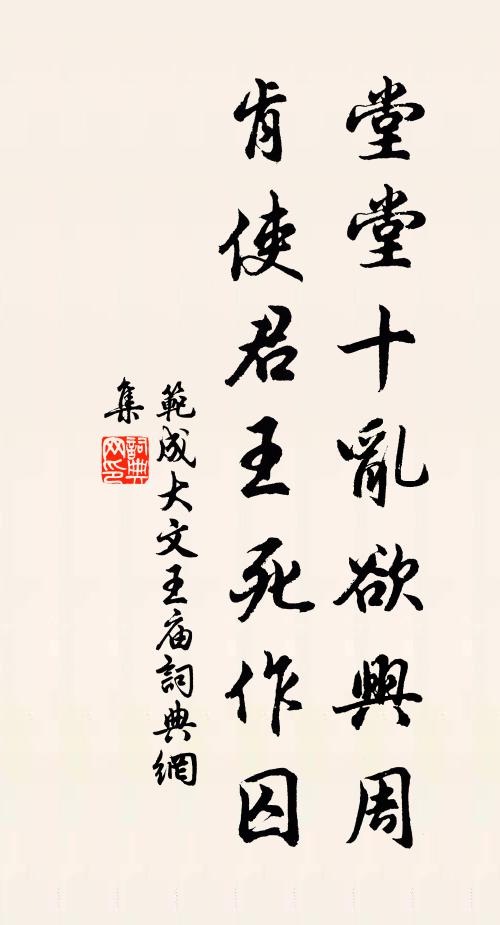 堂堂十亂欲興周
肯使君王死作囚
範成大文王庙詞典網
集
詞典
网印